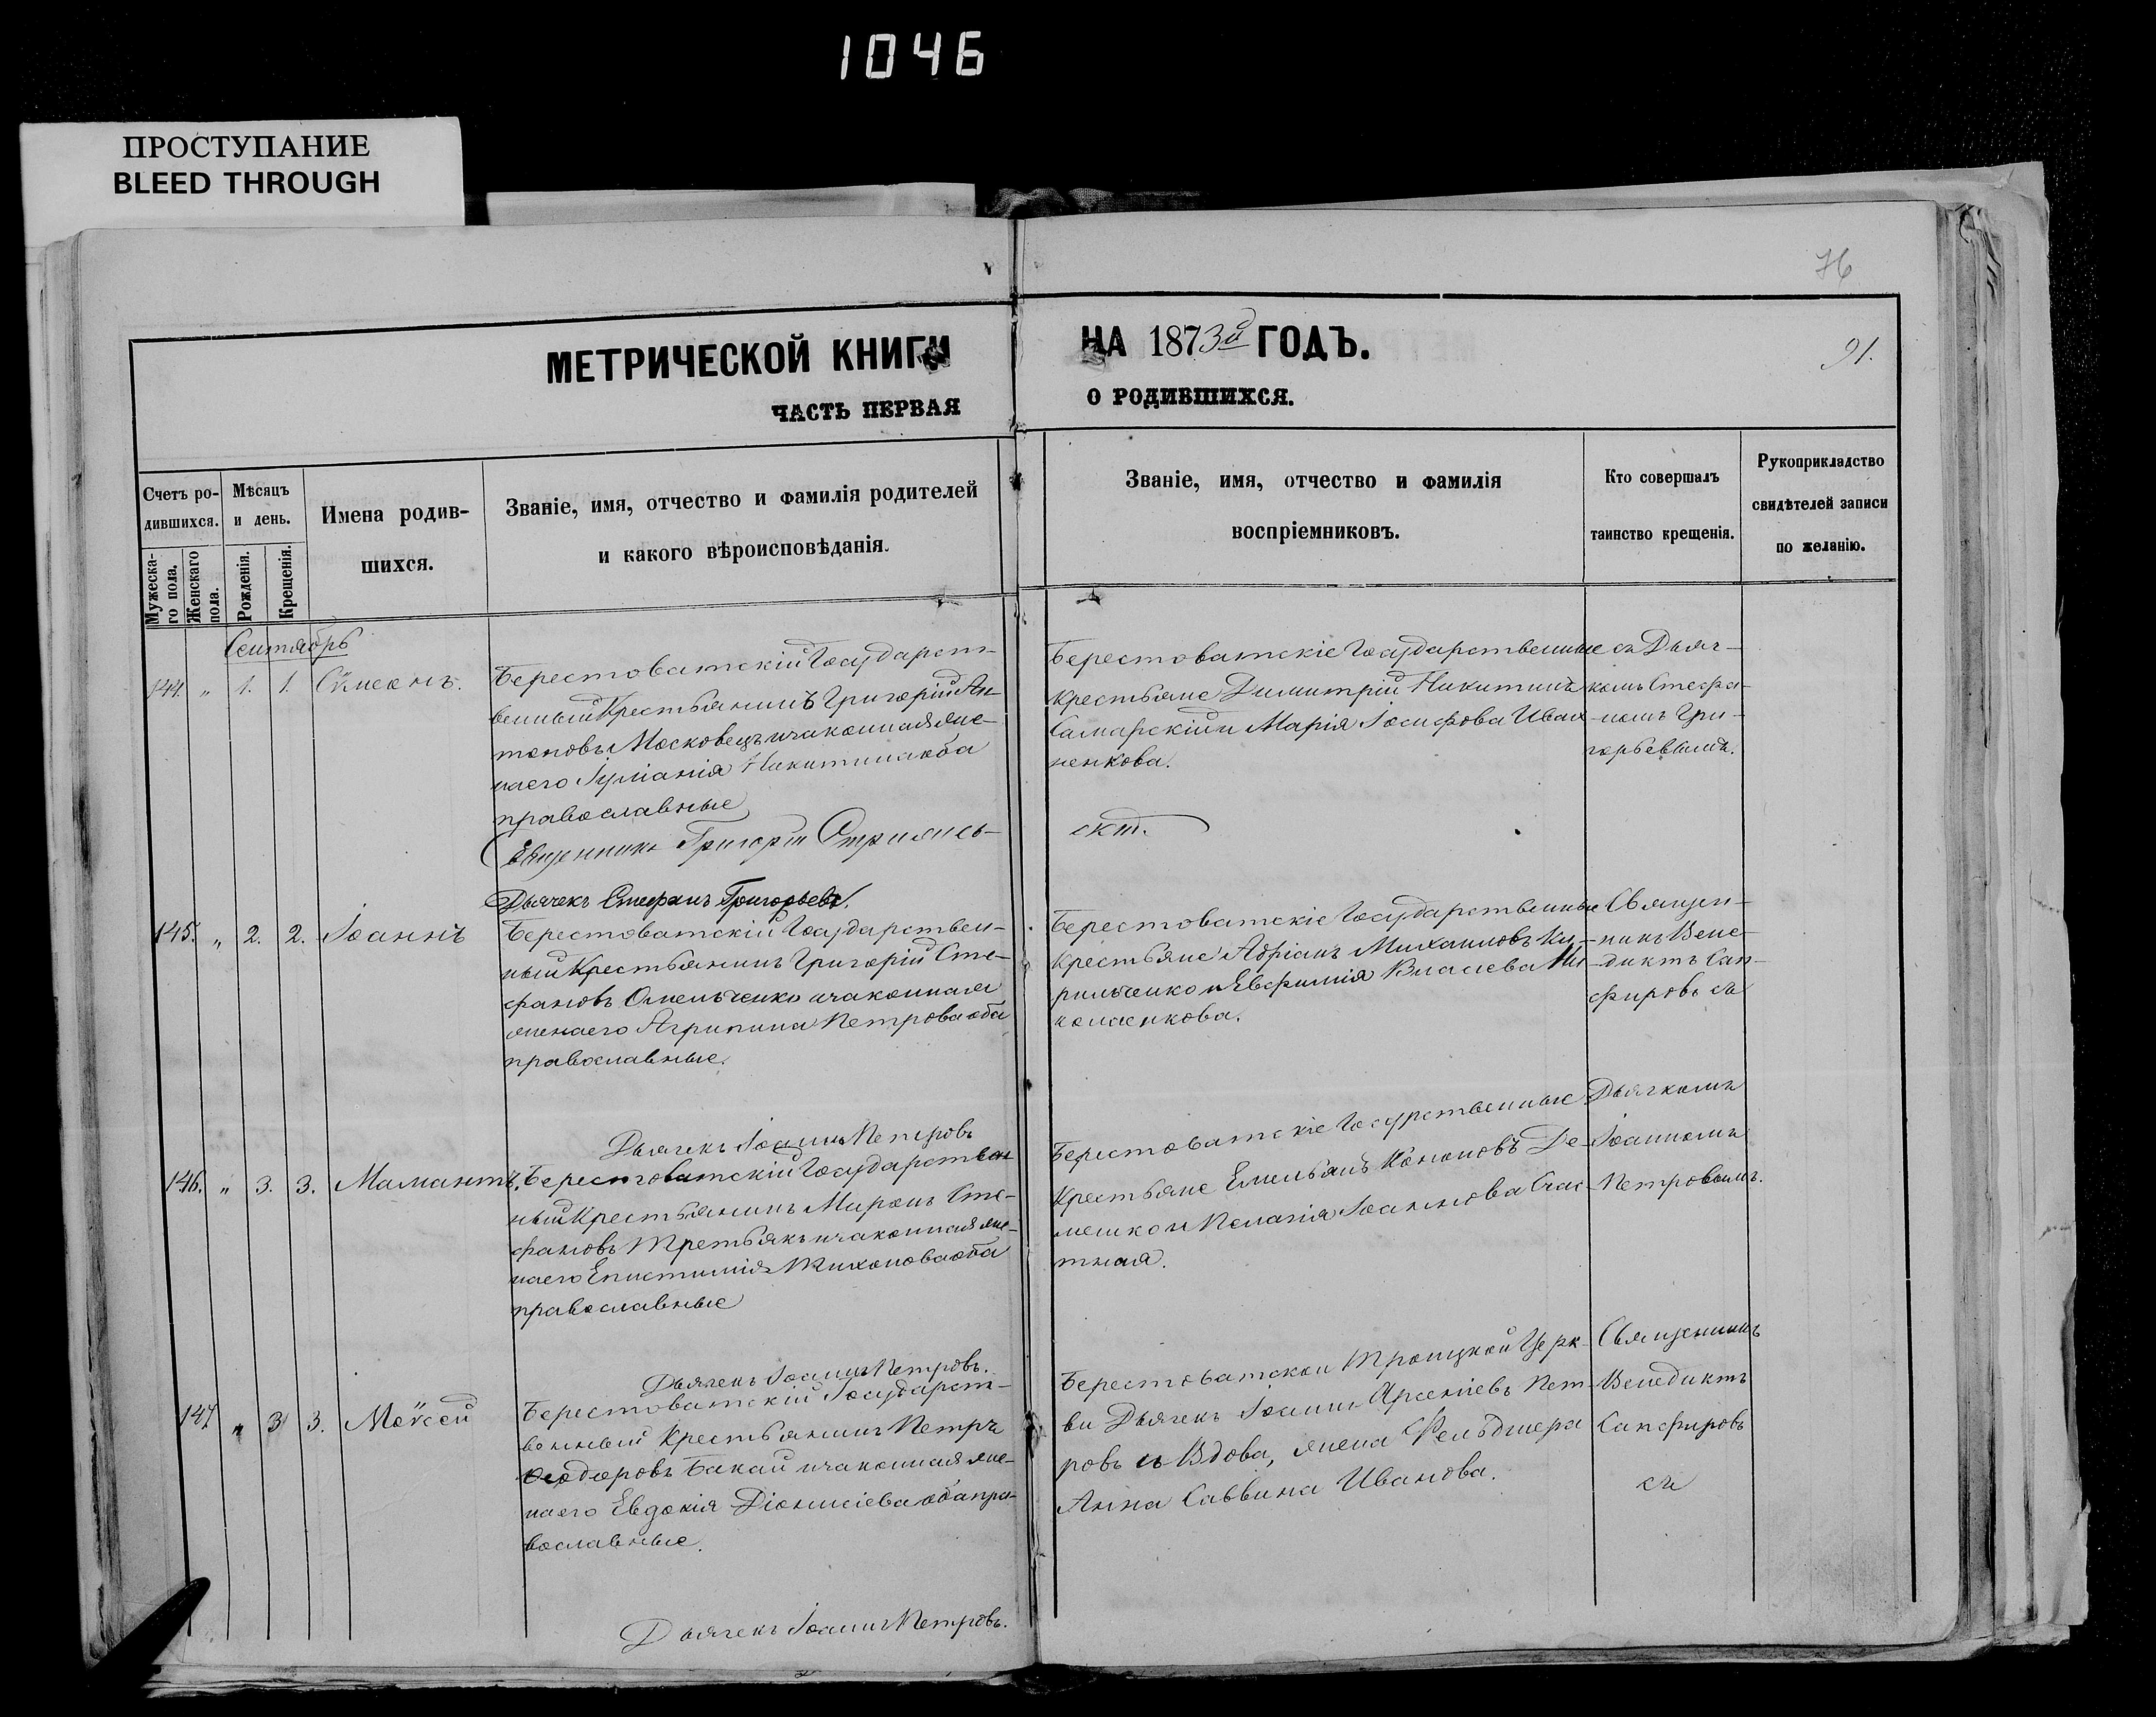 1046
ПРОСТУПАНИЕ
BLEED THROUGH
76
МЕТРИЧЕСКОЙ КНИГИ
НА 1873й ГОДЪ.
91.
ЧАСТЬ ПЕРВАЯ
О РОДИВШИХСЯ.
Счетъ ро-
дившихся.
Мужеска-
го пола.
Женскаго
пола.
Мѣсяцъ
и день.
Рожденія.
Крещенія.
Имена родив-
шихся.
Званіе, имя, отчество и фамилія родителей
и какого вѣроисповѣданія.
Званіе, имя, отчество и фамилія
воспріемниковъ.
Кто совершалъ
таинство крещенія.
Рукоприкладство
свидѣтелей записи
по желанію.
Сентябрь
144. " 1. 1. Сѵмеонъ.
Берестоватскій Государст-
венный Крестьянинъ Григорій Ан-
тоновъ Московецъ и законная же-
на его Іуліанія Никитина оба
православные
Священникъ Григорій Стріжев-
скій.
Дьячекъ Стефанъ Григорьевъ.
Берестоватскіе Государственные
Крестьяне Димитрій Никитинъ
Самарскій и Марія Іосифова Иван-
ненкова.
съ Дьяч-
комъ Стефа-
номъ Гри-
горьевымъ.
145. " 2. 2. Іоаннъ
Берестоватскій Государствен-
ный Крестьянинъ Григорій Сте-
фановъ Омельченко и законная
жена его Агрипина Петрова оба
православные.
Дьячекъ Іоаннъ Петровъ
Берестоватскіе Государственные
Крестьяне Адріанъ Михаиловъ Ки-
рильченко и Евфимія Власіева Ни-
коленкова.
Священ-
никъ Вене-
диктъ Сап-
фировъ съ
146. " 3. 3. Мамантъ.
Берестоватскій Государствен
ный Крестьянинъ Миронъ Сте-
фановъ Третьякъ и законная же-
на его Епистимія Тихонова оба
православные
Дьячекъ Іоаннъ Петровъ.
Берестоватскіе Госурственные
Крестьяне Емельянъ Кононовъ Де-
мешко и Пелагія Іоаннова Счас-
тная.
Дьячкомъ
Іоанномъ
Петровымъ.
147 " 3 3. Моѵсей
Берестоватскій Государст-
венный Крестьянинъ Петръ
Ѳеодоровъ Бакай и законная же-
на его Евдокія Діонисіева оба пра-
вославные.
Дьячекъ Іоаннъ Петровъ.
Берестоватской Троицкой Церк-
ви Дьячекъ Іоаннъ Арсеніевъ Пет-
ровъ и Вдова, жена Фельдшера
Анна Саввина Иванова.
Священникъ
Венедиктъ
Сапфировъ
съ